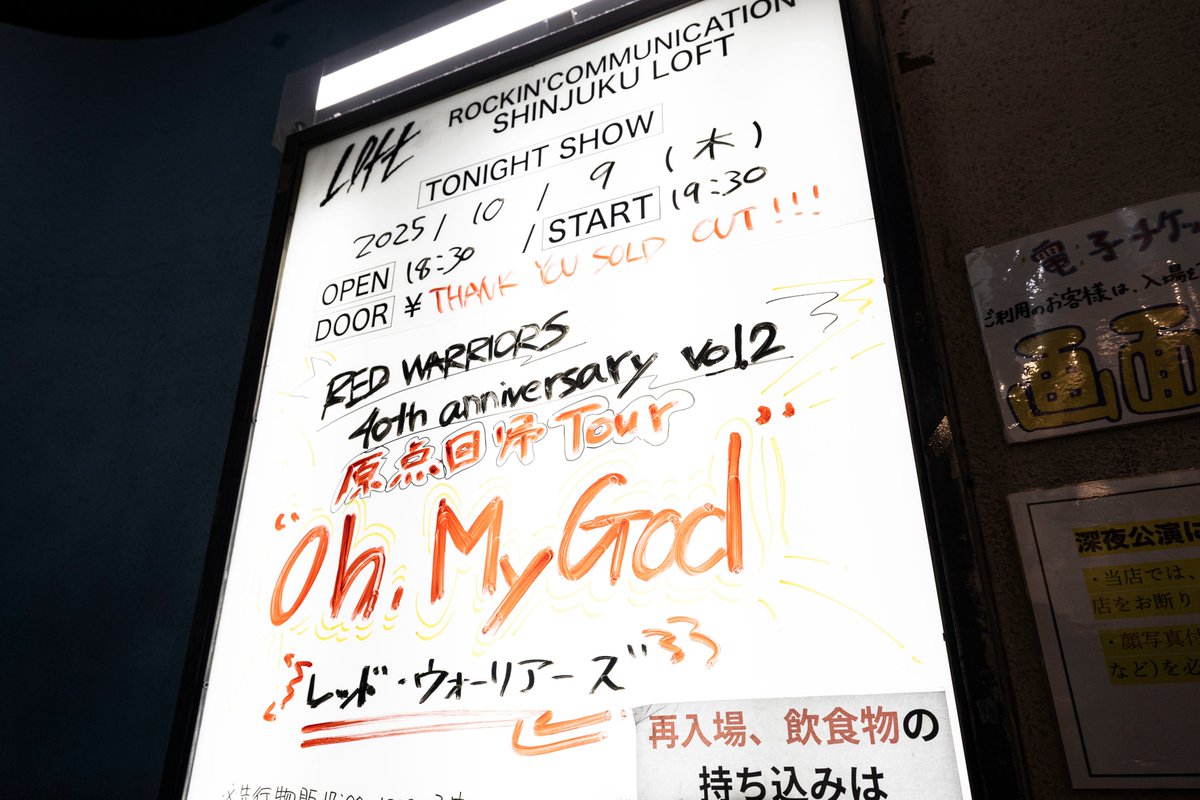 ROCKIN'COMMUNICATION
SHINJUKU LOFT
LOFT
TONIGHT SHOW
2025/10/9(木)
OPEN 18:30 / START 19:30
DOOR ¥ THANK YOU SOLD OUT!!!
RED WARRIORS
40th anniversary vol.2
原点回帰Tour
"Oh, My God"
レッド・ウォーリアーズ
再入場、飲食物の
持ち込みは
電子チケッ
ご利用のお客様は、入場
画面
深夜公演に
・当店では、
店をお断り
・顔写真付
など)を必